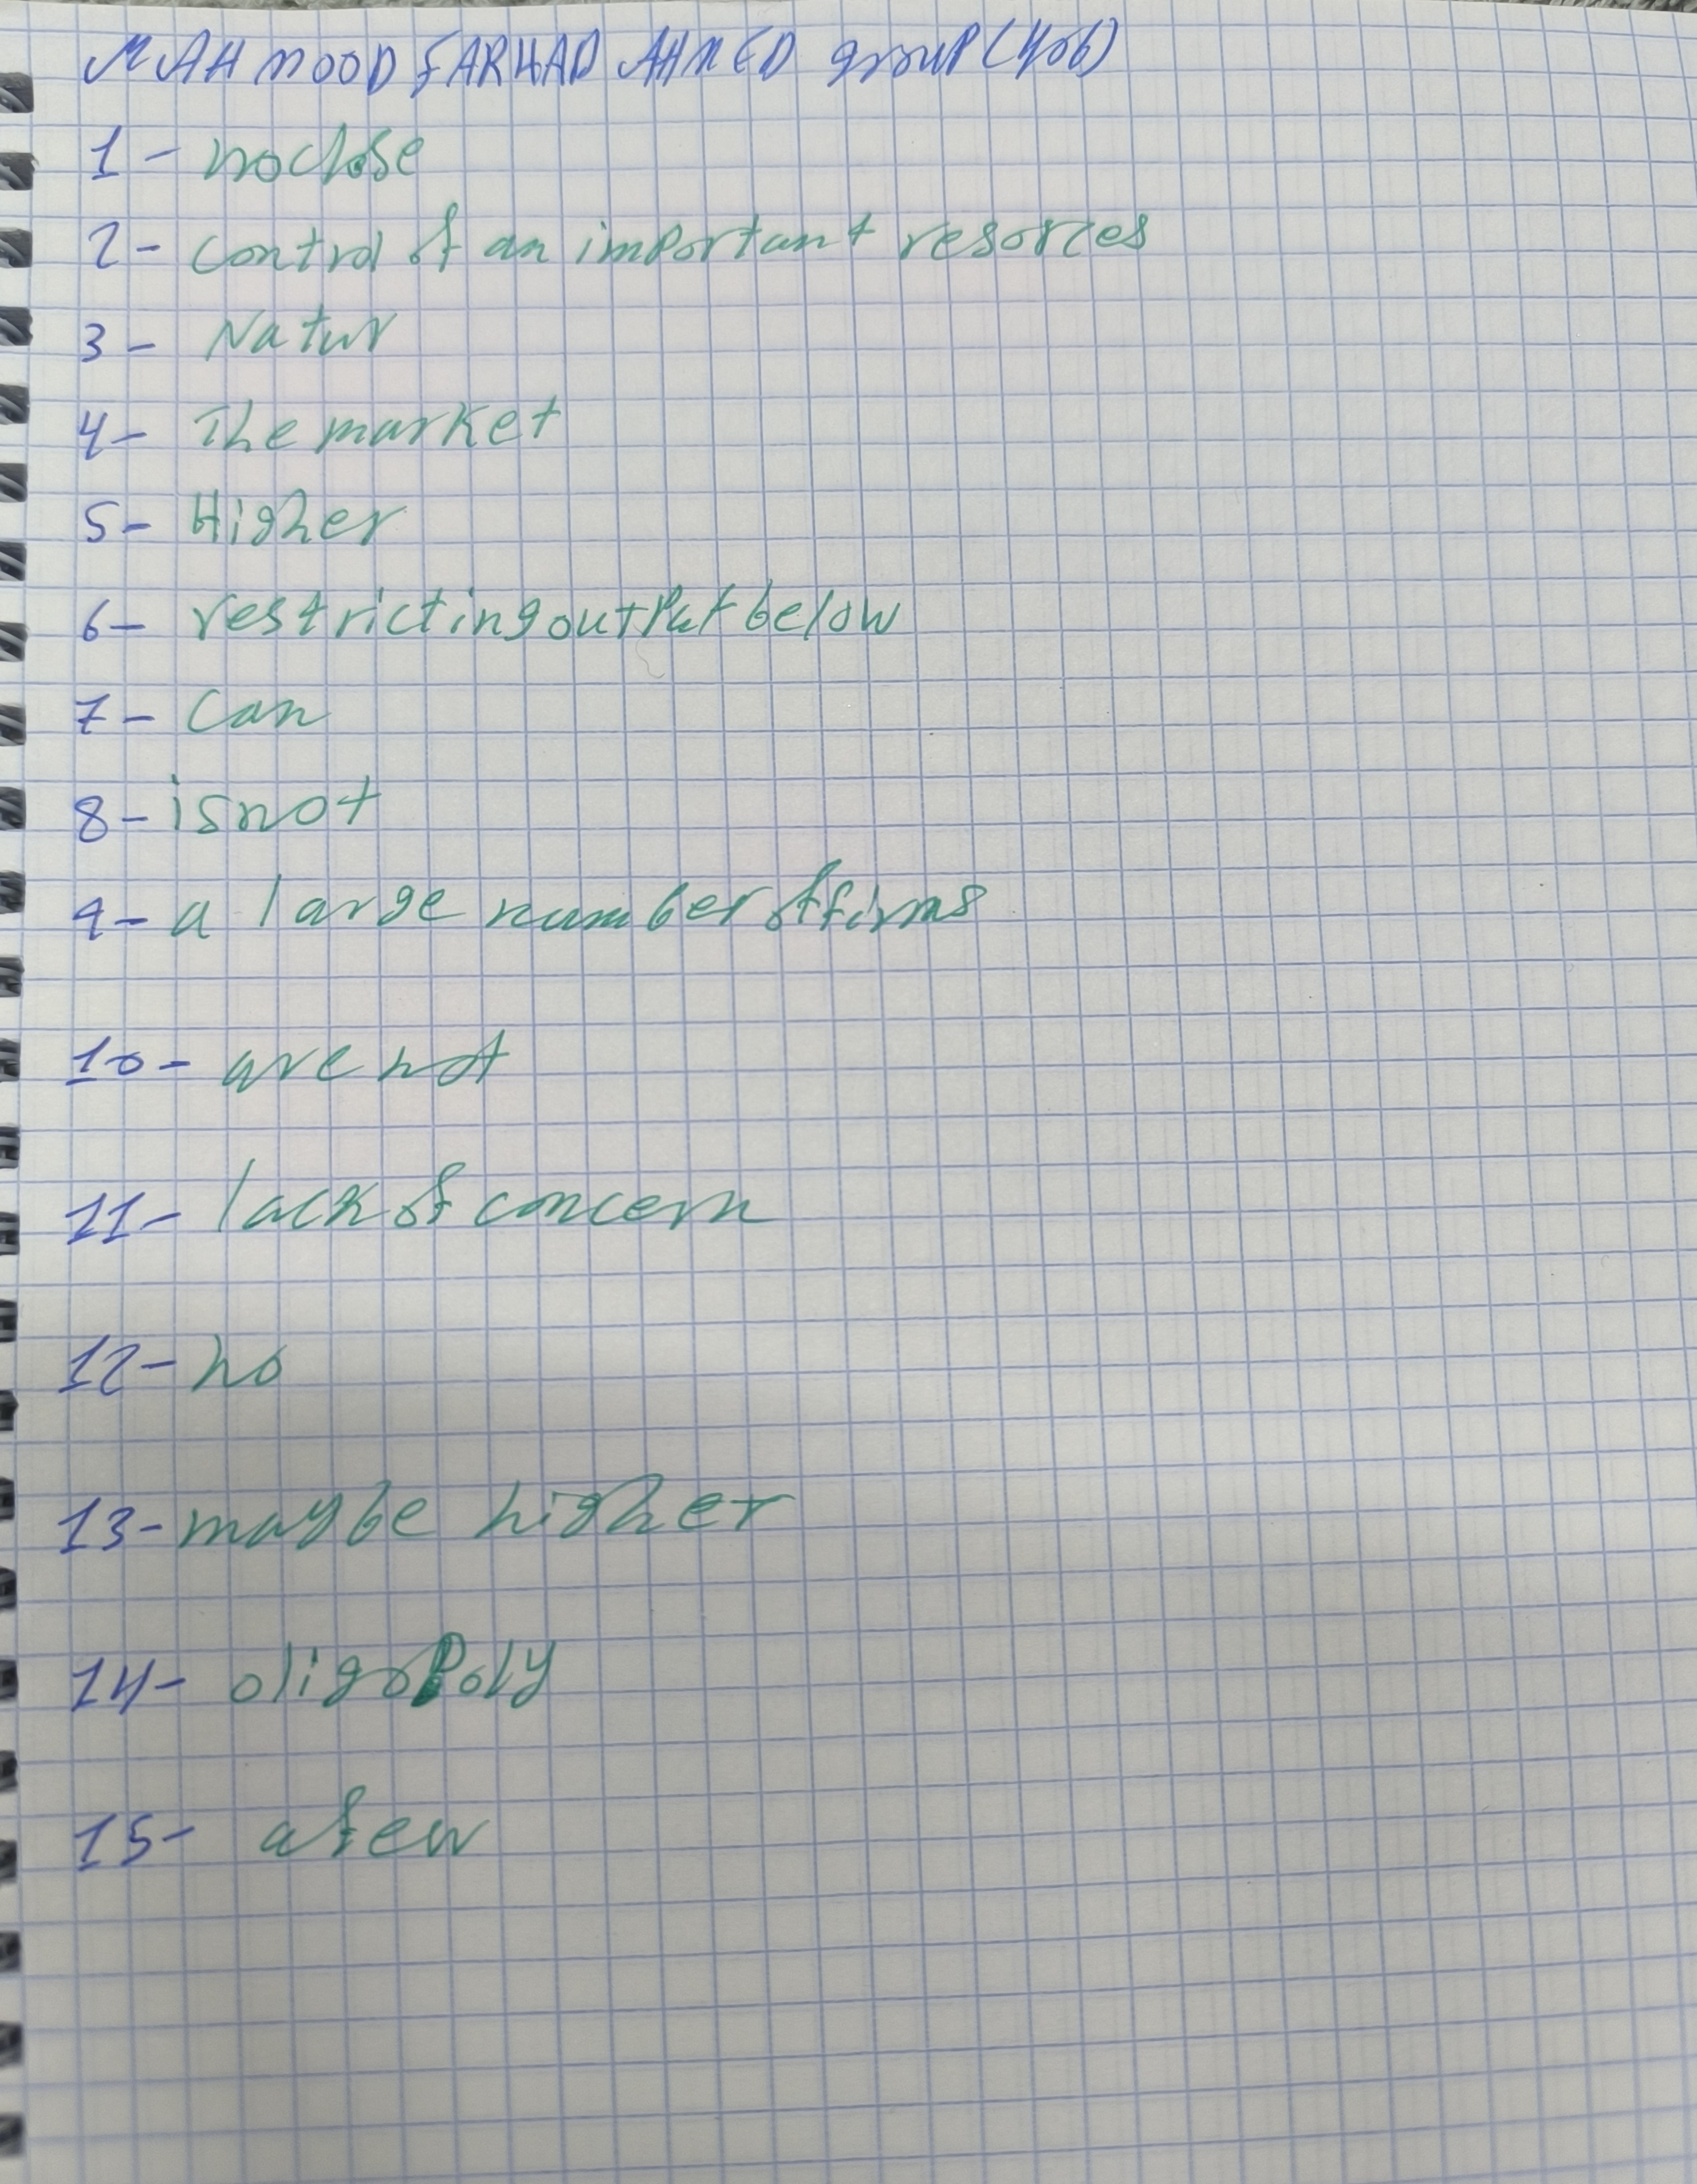 MAHMOOD FARHAD AHMED group (406)
1- no close
2- control of an important resorces
3- Natur
4- The market
5- Higher
6- restricting output below
7- Can
8- is not
9- a large number of firms
10- are not
11- lack of concern
12- no
13- maybe higher
14- oligopoly
15- a few